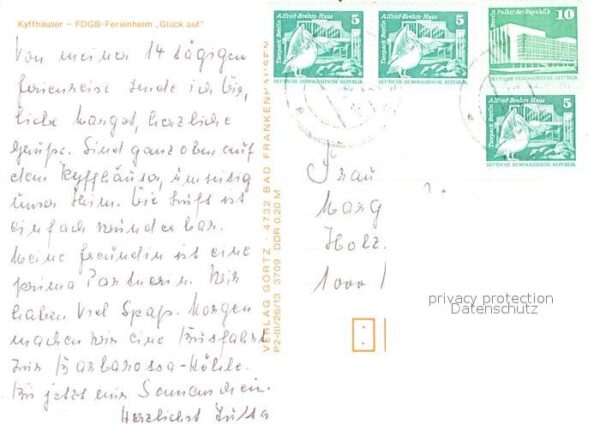 Kyffhäuser – FDGB-Ferienheim „Glück auf“
Von meiner 14 tägigen
Ferienreise sende ich Dir,
liebe Margot, herzliche
Grüße. Sind ganz oben auf
dem Kyffhäuser,
unser Heim. Die Luft ist
einfach wunderbar.
Meine Freundin ist eine
prima Partnerin. Wir
haben viel Spaß. Morgen
machen wir eine Busfahrt
zur Barbarossa-Höhle.
Bis jetzt nur Sonnenschein.
Herzlichst Jutta
VERLAG GÖRTZ, 4732 BAD FRANKENHAUSEN
P2-III/26/13 3709 DDR 0,20 M
Alfred-Brehm Haus 5
Tierpark Berlin
DEUTSCHE DEMOKRATISCHE REPUBLIK
Alfred-Brehm Haus 5
Tierpark Berlin
DEUTSCHE DEMOKRATISCHE REPUBLIK
Berlin, Palast der Republik 10
DEUTSCHE DEMOKRATISCHE REPUBLIK
Alfred-Brehm Haus 5
Tierpark Berlin
DEUTSCHE DEMOKRATISCHE REPUBLIK
Frau
Marg
Holz
1000
privacy protection
Datenschutz